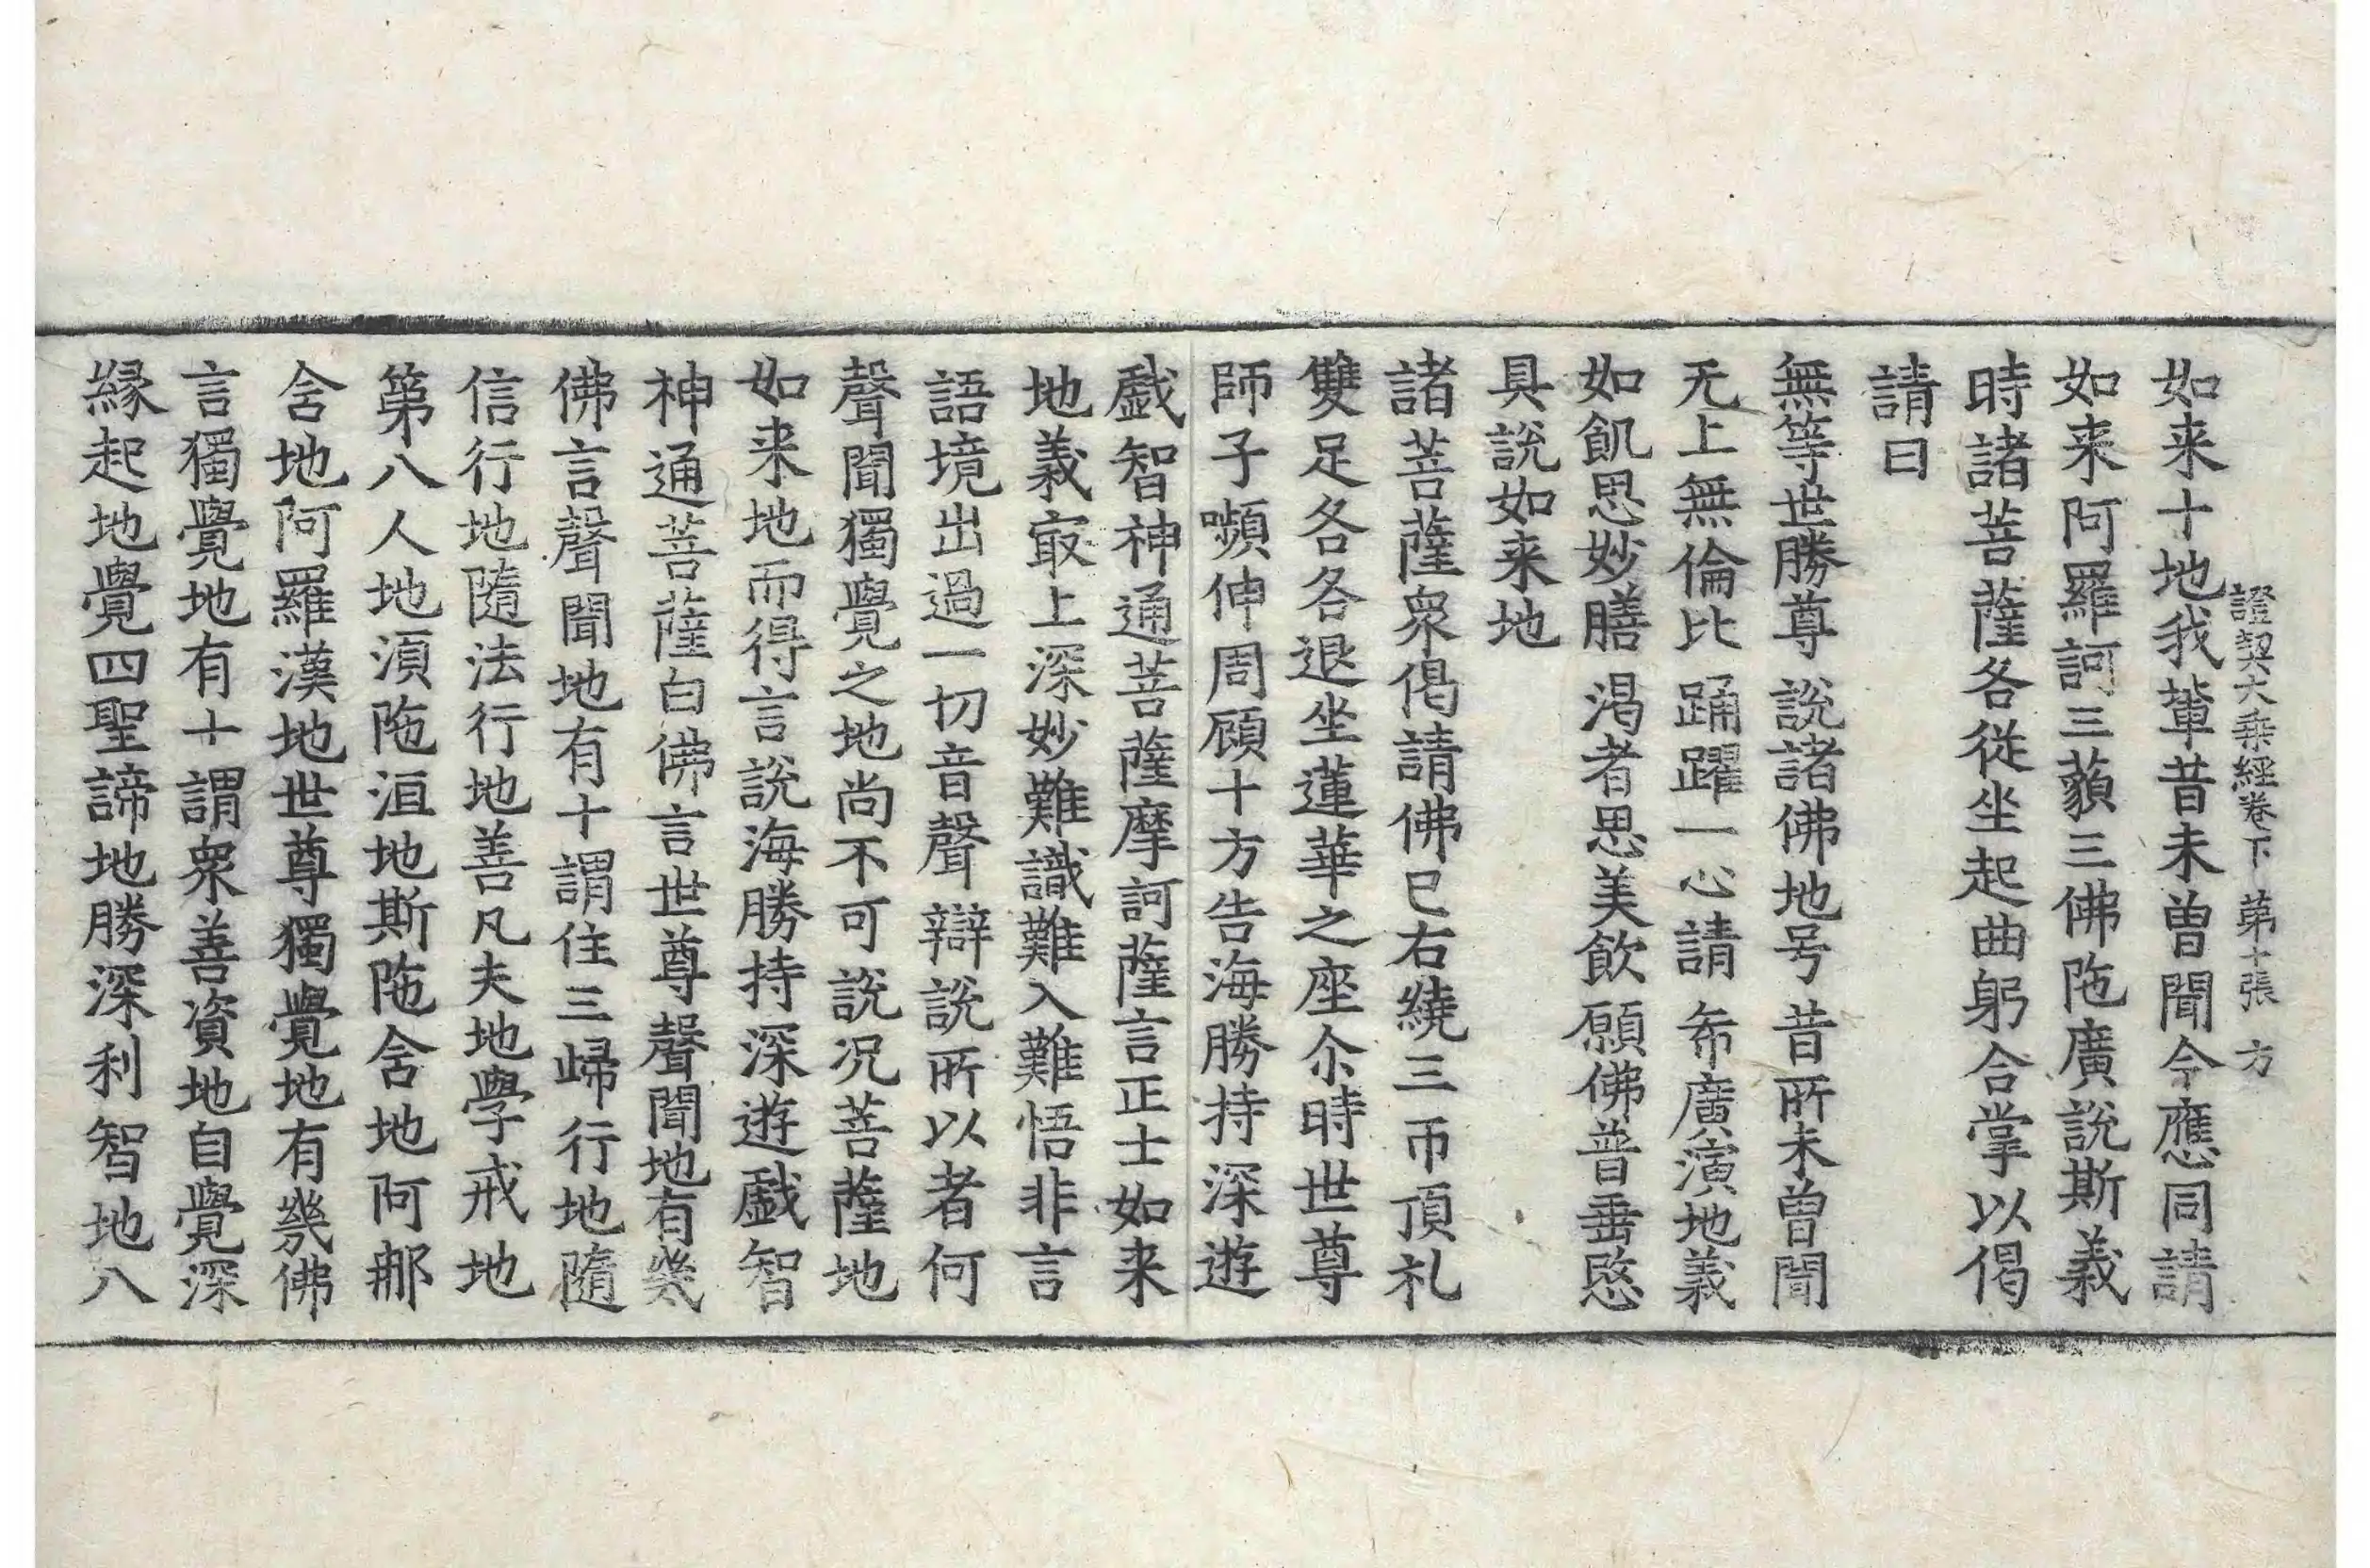 證契大乘經卷下 第十張 方
如来十地我輩昔未曾聞今應同請
如来阿羅訶三藐三佛陁廣說斯義
時諸菩薩各從坐起曲躬合掌以偈
請曰
無等世勝尊 說諸佛地号 昔所未曾聞
无上無倫比 踊躍一心請 希廣演地義
如飢思妙膳 渴者思美飲 願佛普垂愍
具說如来地
諸菩薩衆偈請佛已右繞三帀頂礼
雙足各各退坐蓮華之座尒時世尊
師子嚬伸周顧十方告海勝持深遊
戱智神通菩薩摩訶薩言正士如来
地義㝡上深妙難識難入難悟非言
語境出過一切音聲辯說所以者何
聲聞獨覺之地尚不可說况菩薩地
如来地而得言說海勝持深遊戱智
神通菩薩白佛言世尊聲聞地有幾
佛言聲聞地有十謂住三歸行地隨
信行地隨法行地善凡夫地學戒地
第八人地湏陁洹地斯陁含地阿那
含地阿羅漢地世尊獨覺地有幾佛
言獨覺地有十謂衆善資地自覺深
緣起地覺四聖諦地勝深利智地八